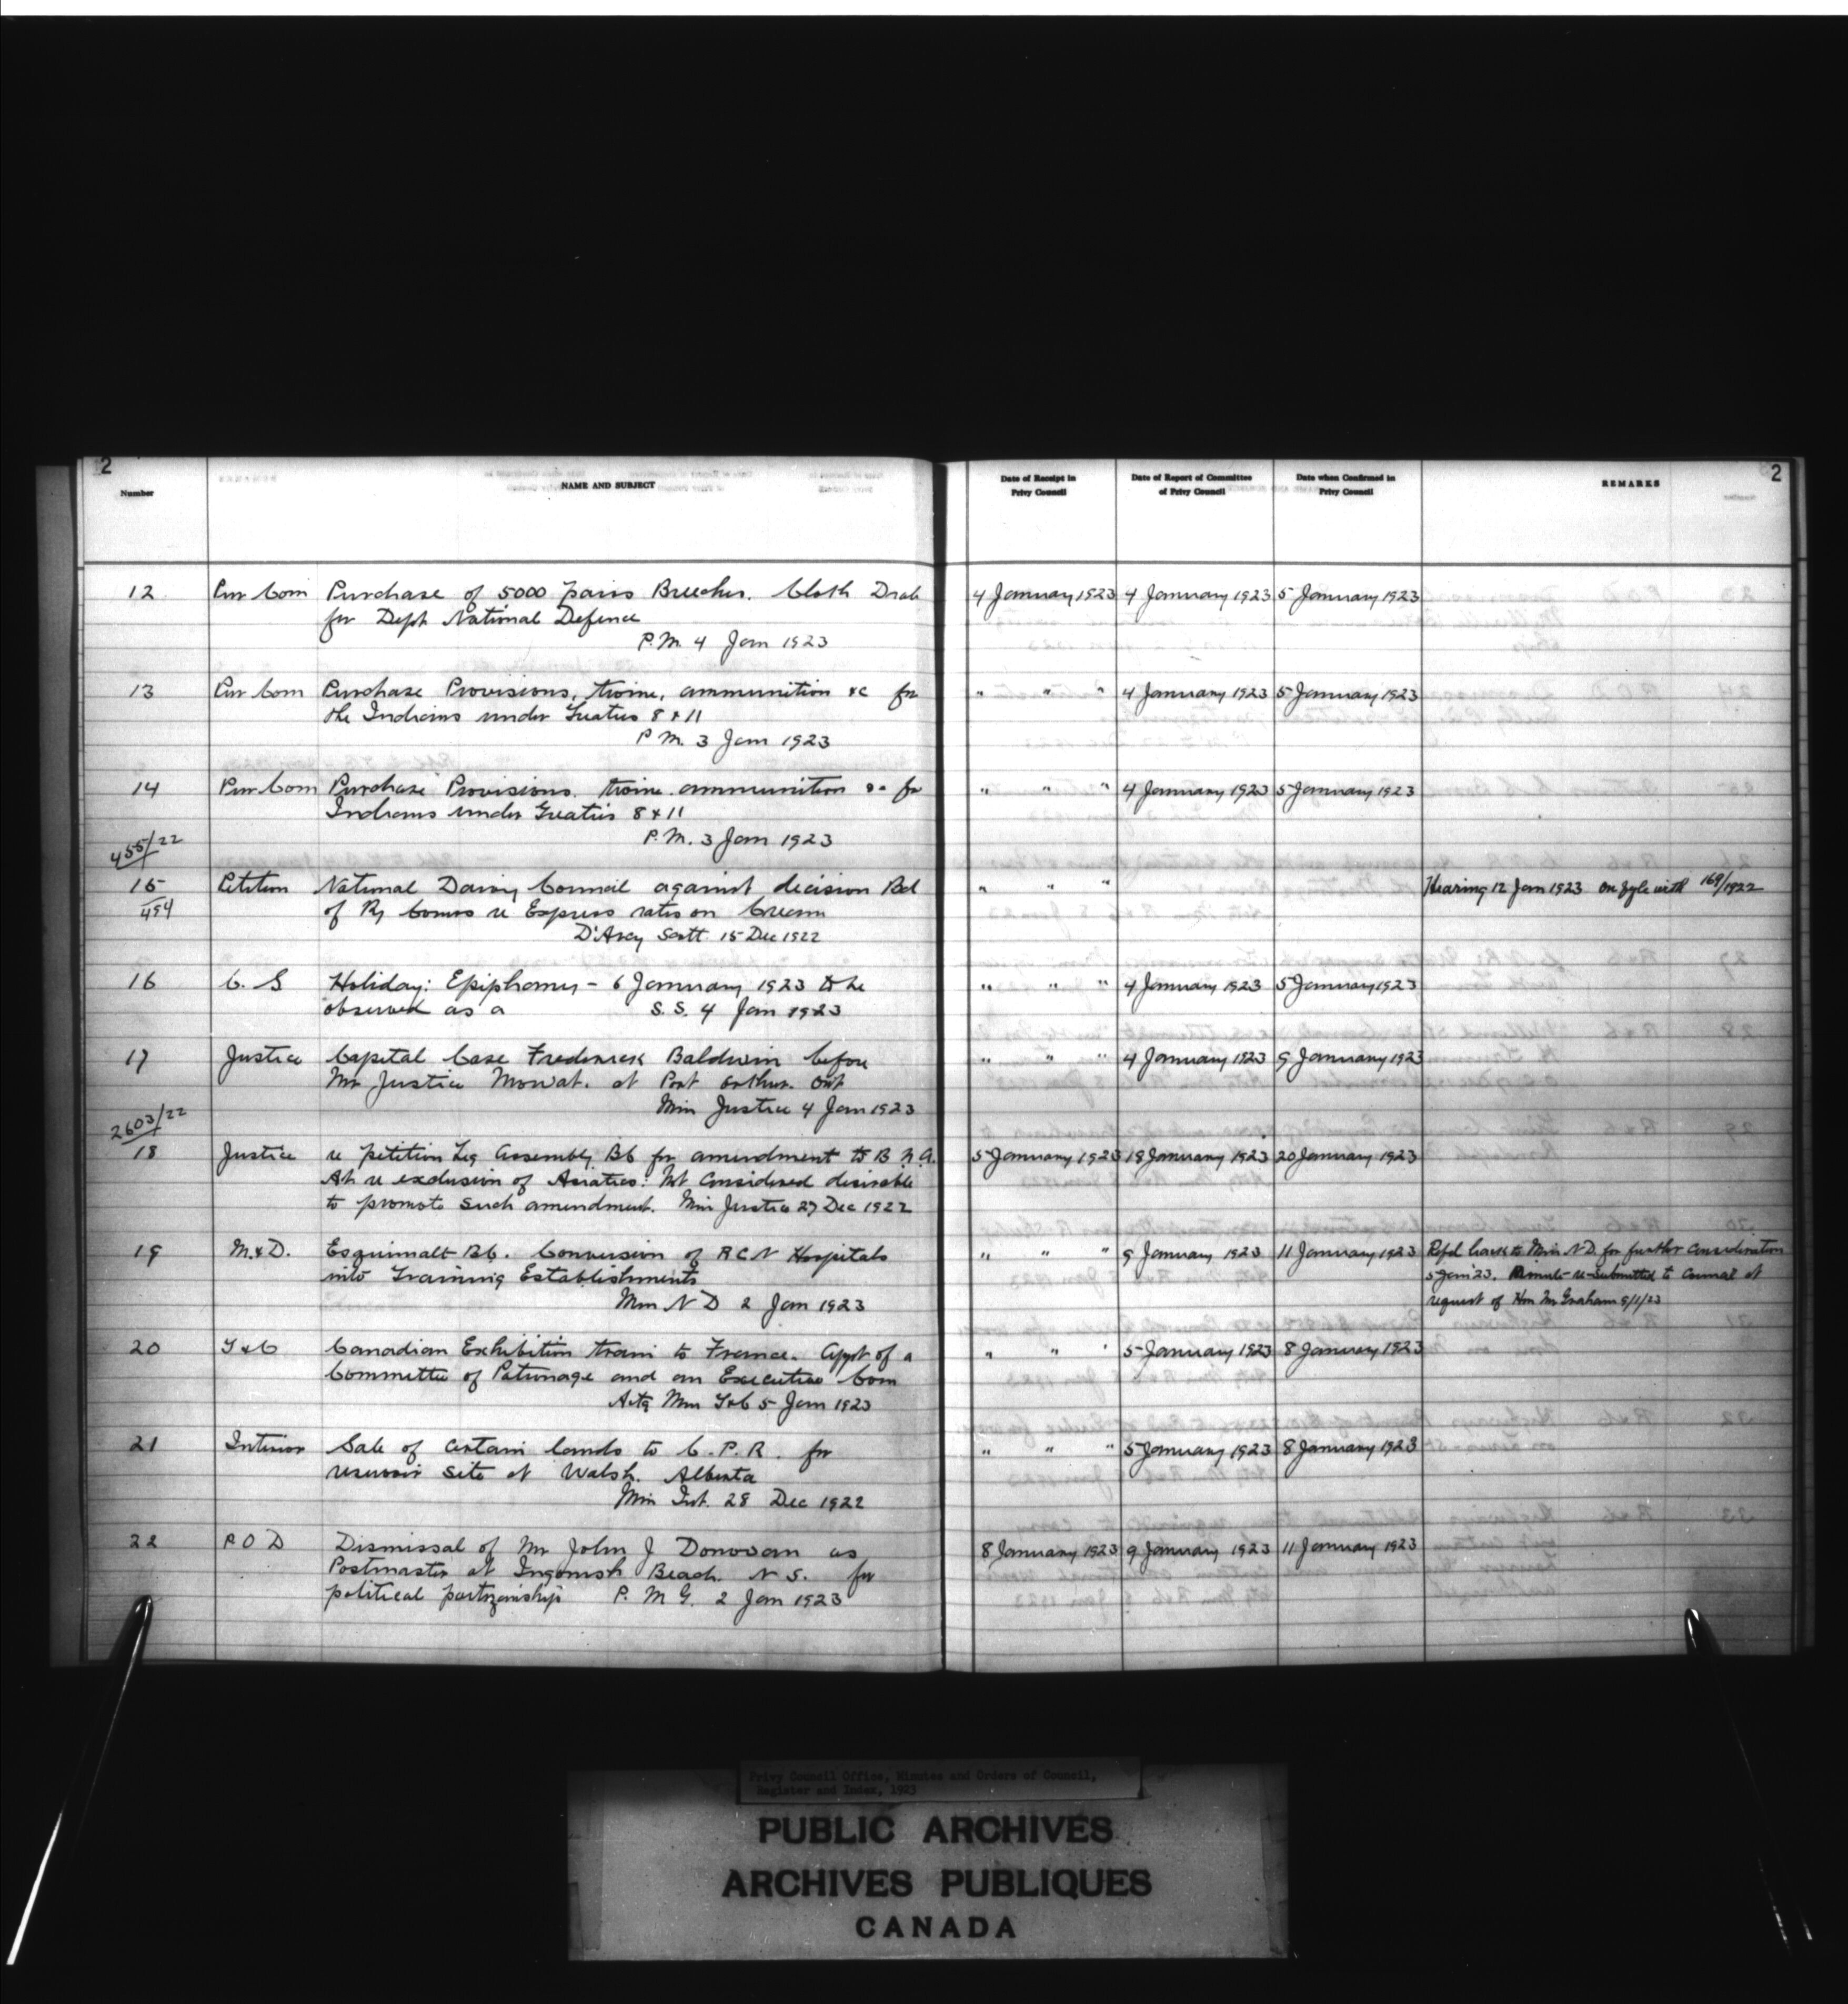 2
Number
NAME AND SUBJECT
Date of Receipt in Privy Council
Date of Report of Committee of Privy Council
Date when Confirmed in Privy Council
REMARKS
2
12 Pur Com Purchase of 5000 pairs Breeches, Cloth Drab 4 January 1923 4 January 1923 5 January 1923
for Dept National Defence
P.M. 4 Jan 1923
13 Pur Com Purchase Provisions, twine, ammunition &c for " " " 4 January 1923 5 January 1923
the Indians under Treaties 8 & 11
P.M. 3 Jan 1923
14 Pur Com Purchase Provisions, twine, ammunition for " " " 4 January 1923 5 January 1923
Indians under Treaties 8 & 11
P.M. 3 Jan 1923
455/22
15 Petition National Dairy Council against decision Bd " " " Hearing 12 Jan 1923 on fyle with 169/1922
494 of Ry Comrs re Express rates on Cream
D'Arcy Scott 15 Dec 1922
16 C. S Holiday: Epiphany - 6 January 1923 to be " " " 4 January 1923 5 January 1923
observed as a S.S. 4 Jan 1923
17 Justice Capital Case Frederick Baldwin before " " " 4 January 1923 9 January 1923
Mr Justice Mowat. at Port Arthur. Ont
Min Justice 4 Jan 1923
2603/22
18 Justice re petition Leg Assembly BC for amendment to B.N.A. 5 January 1923 18 January 1923 20 January 1923
Act re exclusion of Asiatics: Not Considered desirable
to promote such amendment. Min Justice 27 Dec 1922
19 M. & D. Esquimalt BC. Conversion of RCN Hospitals " " " 9 January 1923 11 January 1923 Refd back to Min N.D. for further consideration
into Training Establishments 5 Jan '23. Minute re-submitted to Council at
Min N D 2 Jan 1923 request of Hon Mr Graham 9/1/23
20 T & C Canadian Exhibition train to France. Appt of a " " " 5 January 1923 8 January 1923
Committee of Patronage and an Executive Com
Actg Min T&C 5 Jan 1923
21 Interior Sale of certain lands to C.P.R. for " " " 5 January 1923 8 January 1923
reservoir site at Walsh. Alberta
Min Int. 28 Dec 1922
22 P O D Dismissal of Mr John J Donovan as 8 January 1923 9 January 1923 11 January 1923
Postmaster at Ingonish Beach. N S. for
political partizanship P. M G. 2 Jan 1923
Privy Council Office, Minutes and Orders of Council,
Register and Index, 1923
PUBLIC ARCHIVES
ARCHIVES PUBLIQUES
CANADA